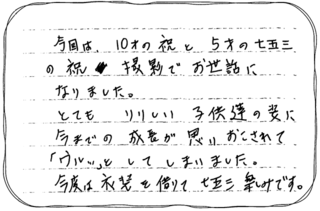 今回は、10才の祝と5才の七五三
の祝 撮影でお世話に
なりました。
とても りりしい 子供達の姿に
今までの 成長が 思いおこされて
「ウルッ」と して しまいました。
今度は衣装を借りて七五三 楽しみです。